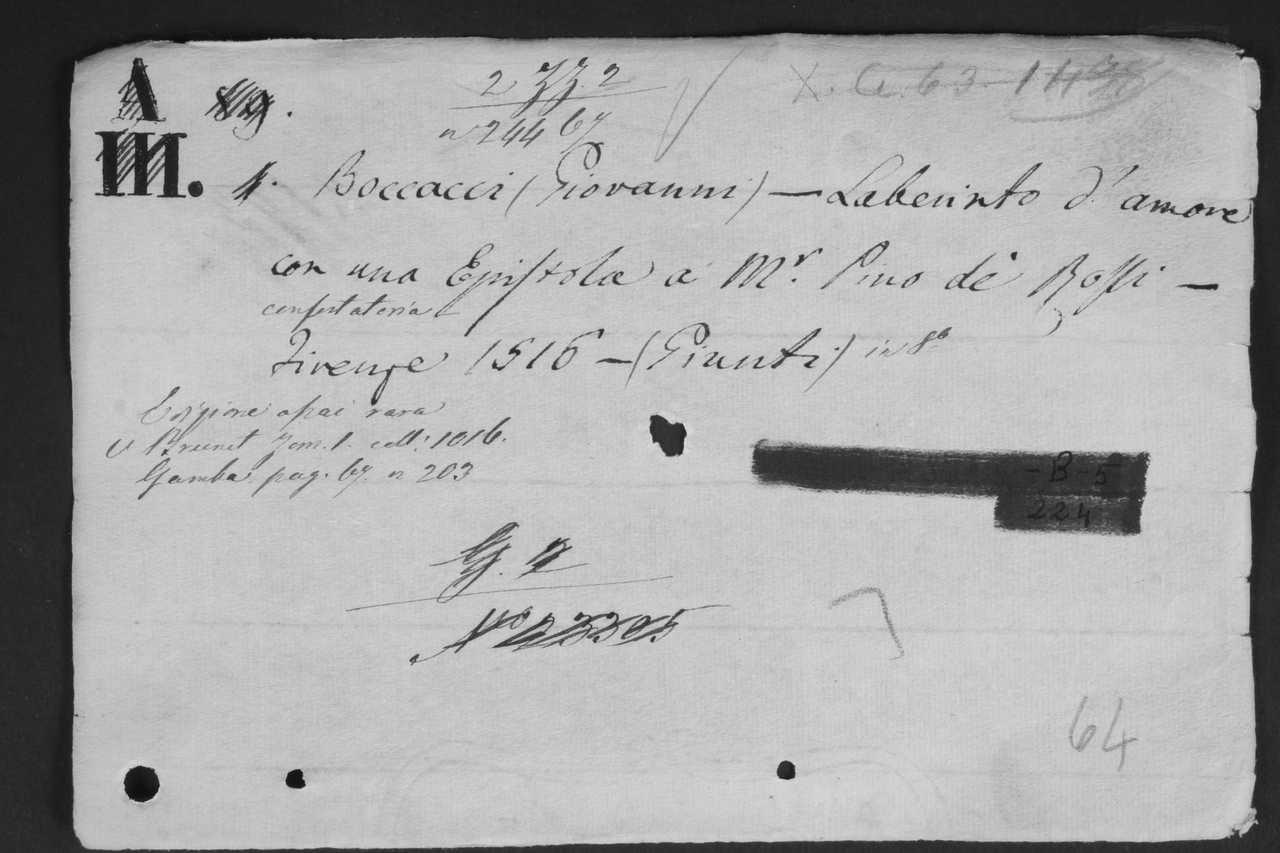 A 89.
2 ZZ. 2
X. G. 63.
n 244 67
III. 1. Boccacci (Giovanni) — Laberinto d'amore
con una Epistola a Mr. Pino dè Rossi —
confortatoria
Firenze 1516 — (Giunti) in 8º
Edizione assai rara
V Brunet Tom. 1. coll: 1016.
Gamba pag. 67. n 203
-B-5
224
G. 2
64